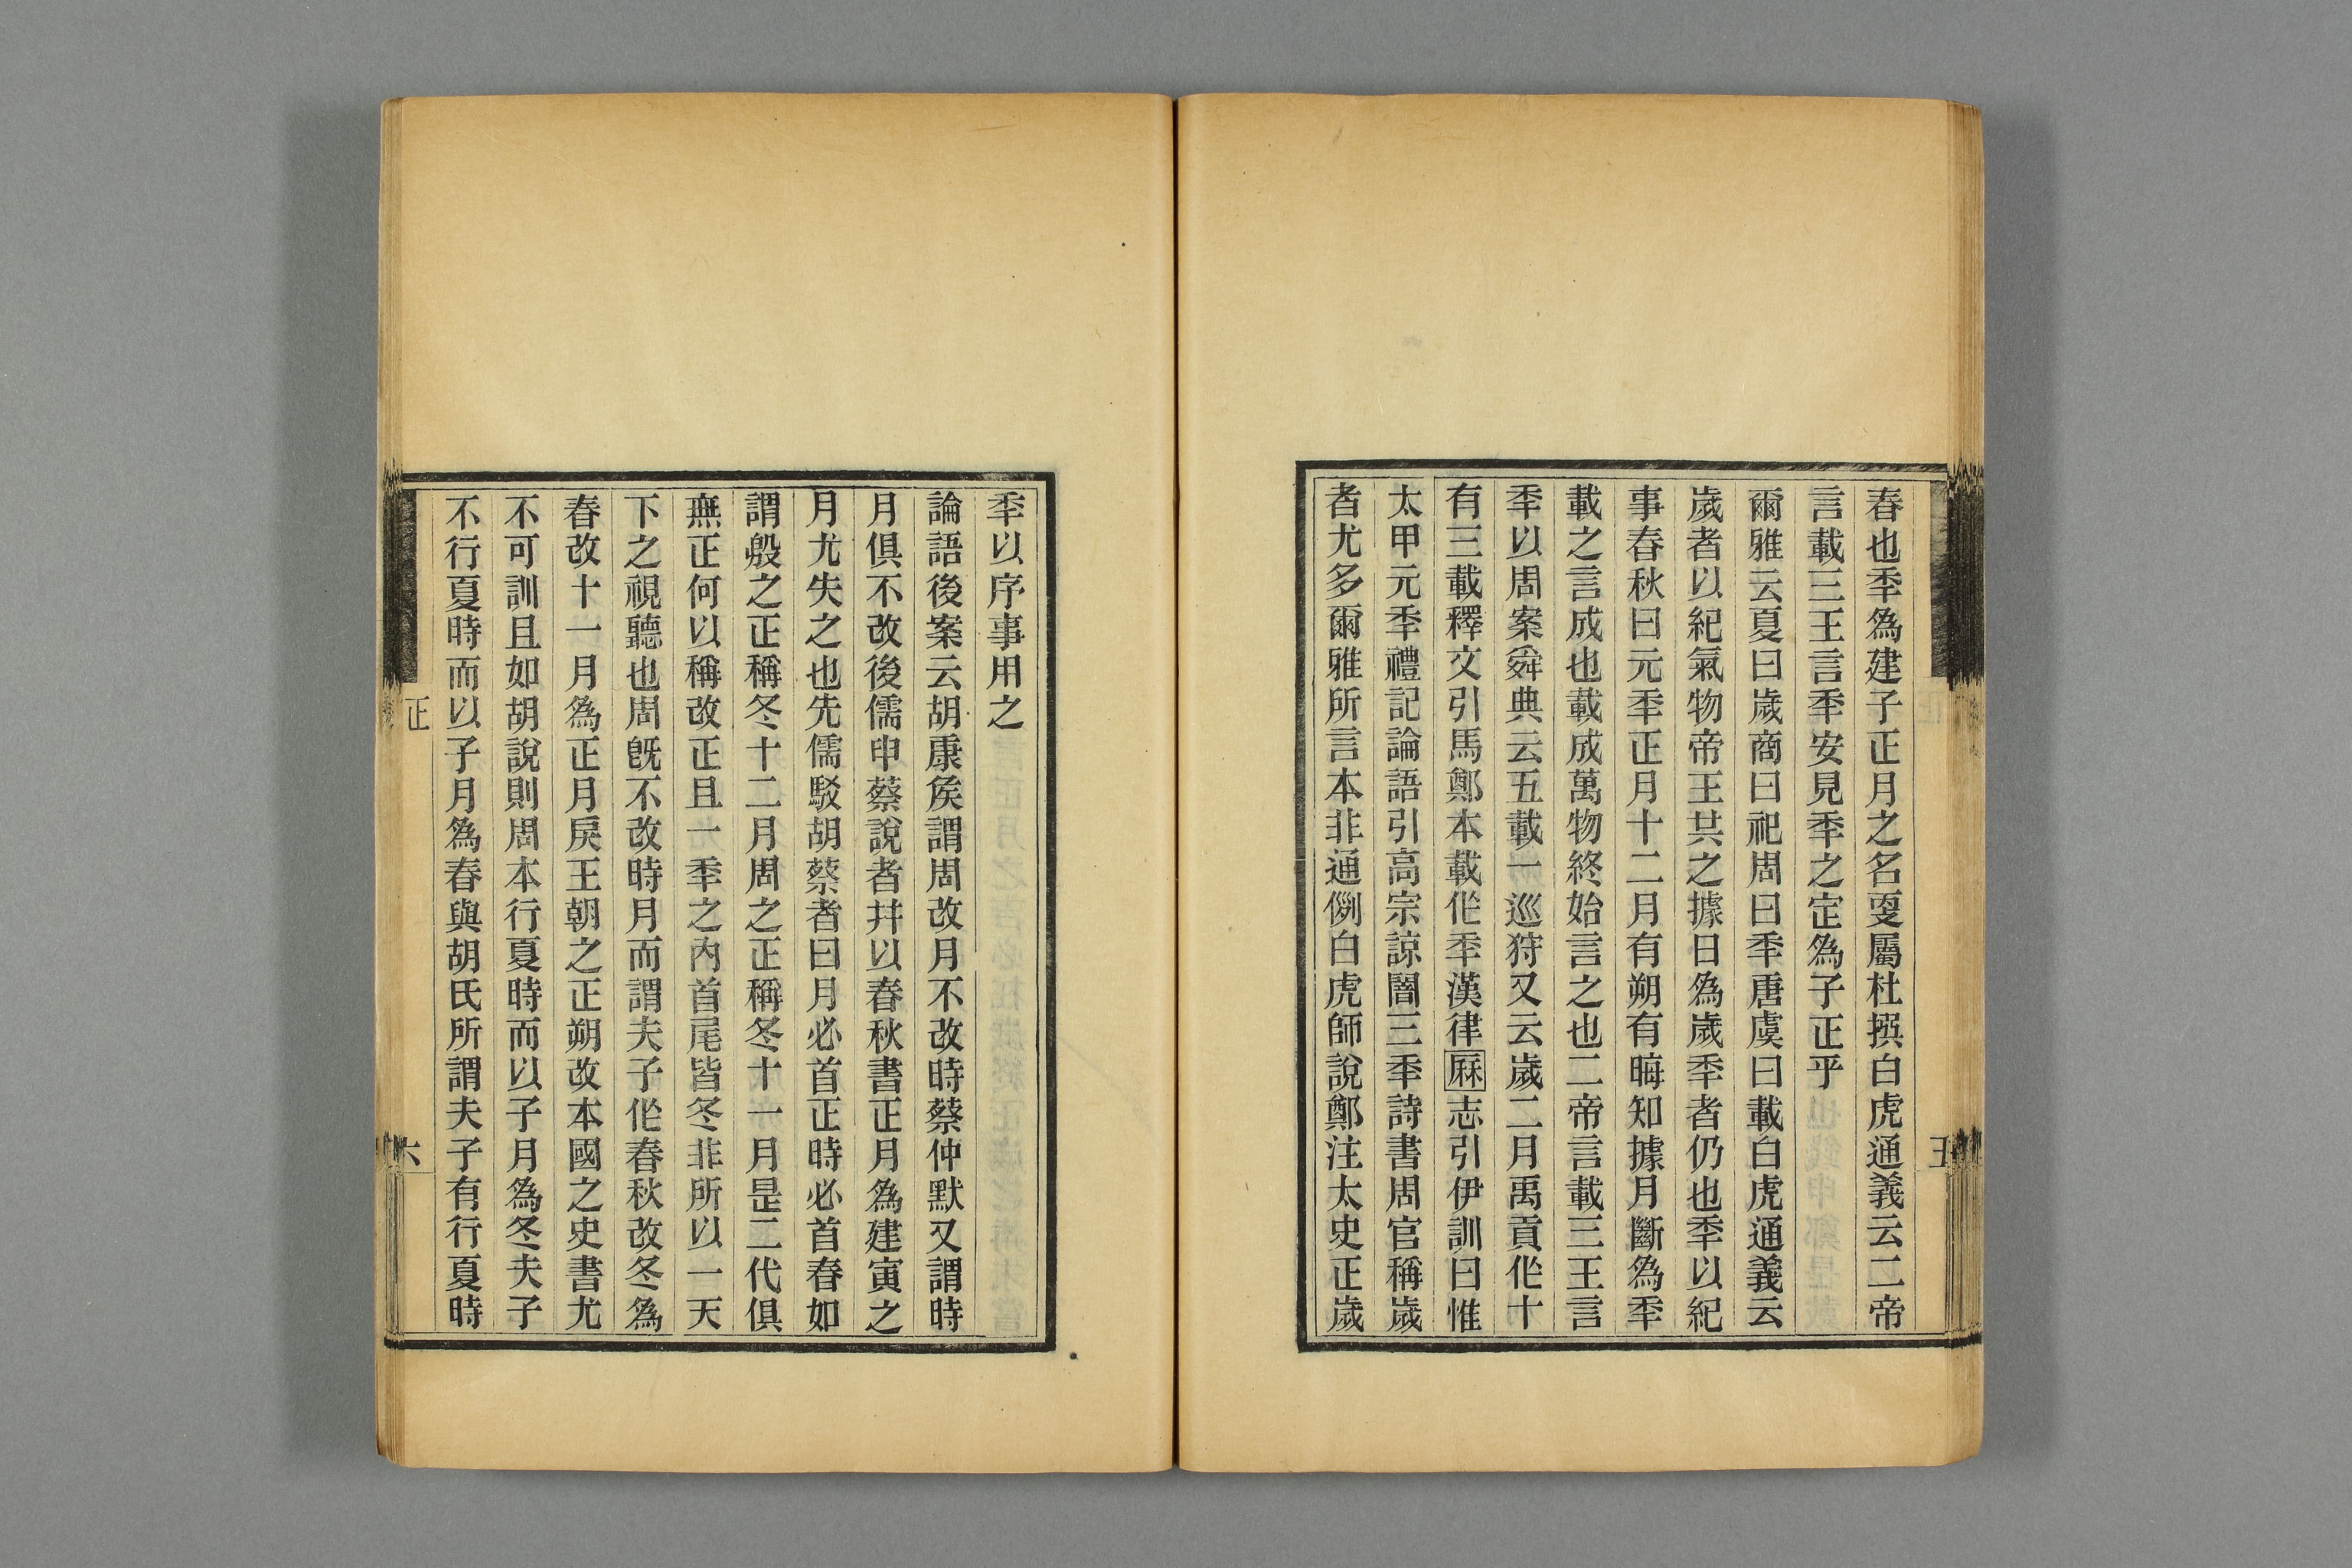 春也秊爲建子正月之名耎屬杜撰白虎通義云二帝
言載三王言秊安見秊之定爲子正乎
爾雅云夏曰歲商曰祀周曰秊唐虞曰載白虎通義云
歲者以紀氣物帝王共之據日爲歲秊者仍也秊以紀
事春秋曰元秊正月十二月有朔有晦知據月斷爲秊
載之言成也載成萬物終始言之也二帝言載三王言
秊以周案舜典云五載一巡狩又云歲二月禹貢作十
有三載釋文引馬鄭本載作秊漢律厤志引伊訓曰惟
太甲元秊禮記論語引高宗諒闇三秊詩書周官稱歲
者尤多爾雅所言本非通例白虎師說鄭注太史正歲
秊以序事用之
論語後案云胡康矦謂周改月不改時蔡仲默又謂時
月俱不改後儒申蔡說者幷以春秋書正月爲建寅之
月尤失之也先儒駁胡蔡者曰月必首正時必首春如
謂殷之正稱冬十二月周之正稱冬十一月是二代俱
無正何以稱改正且一秊之內首尾皆冬非所以一天
下之視聽也周旣不改時月而謂夫子作春秋改冬爲
春改十一月爲正月戾王朝之正朔改本國之史書尤
不可訓且如胡說則周本行夏時而以子月爲冬夫子
不行夏時而以子月爲春與胡氏所謂夫子有行夏時
正
六